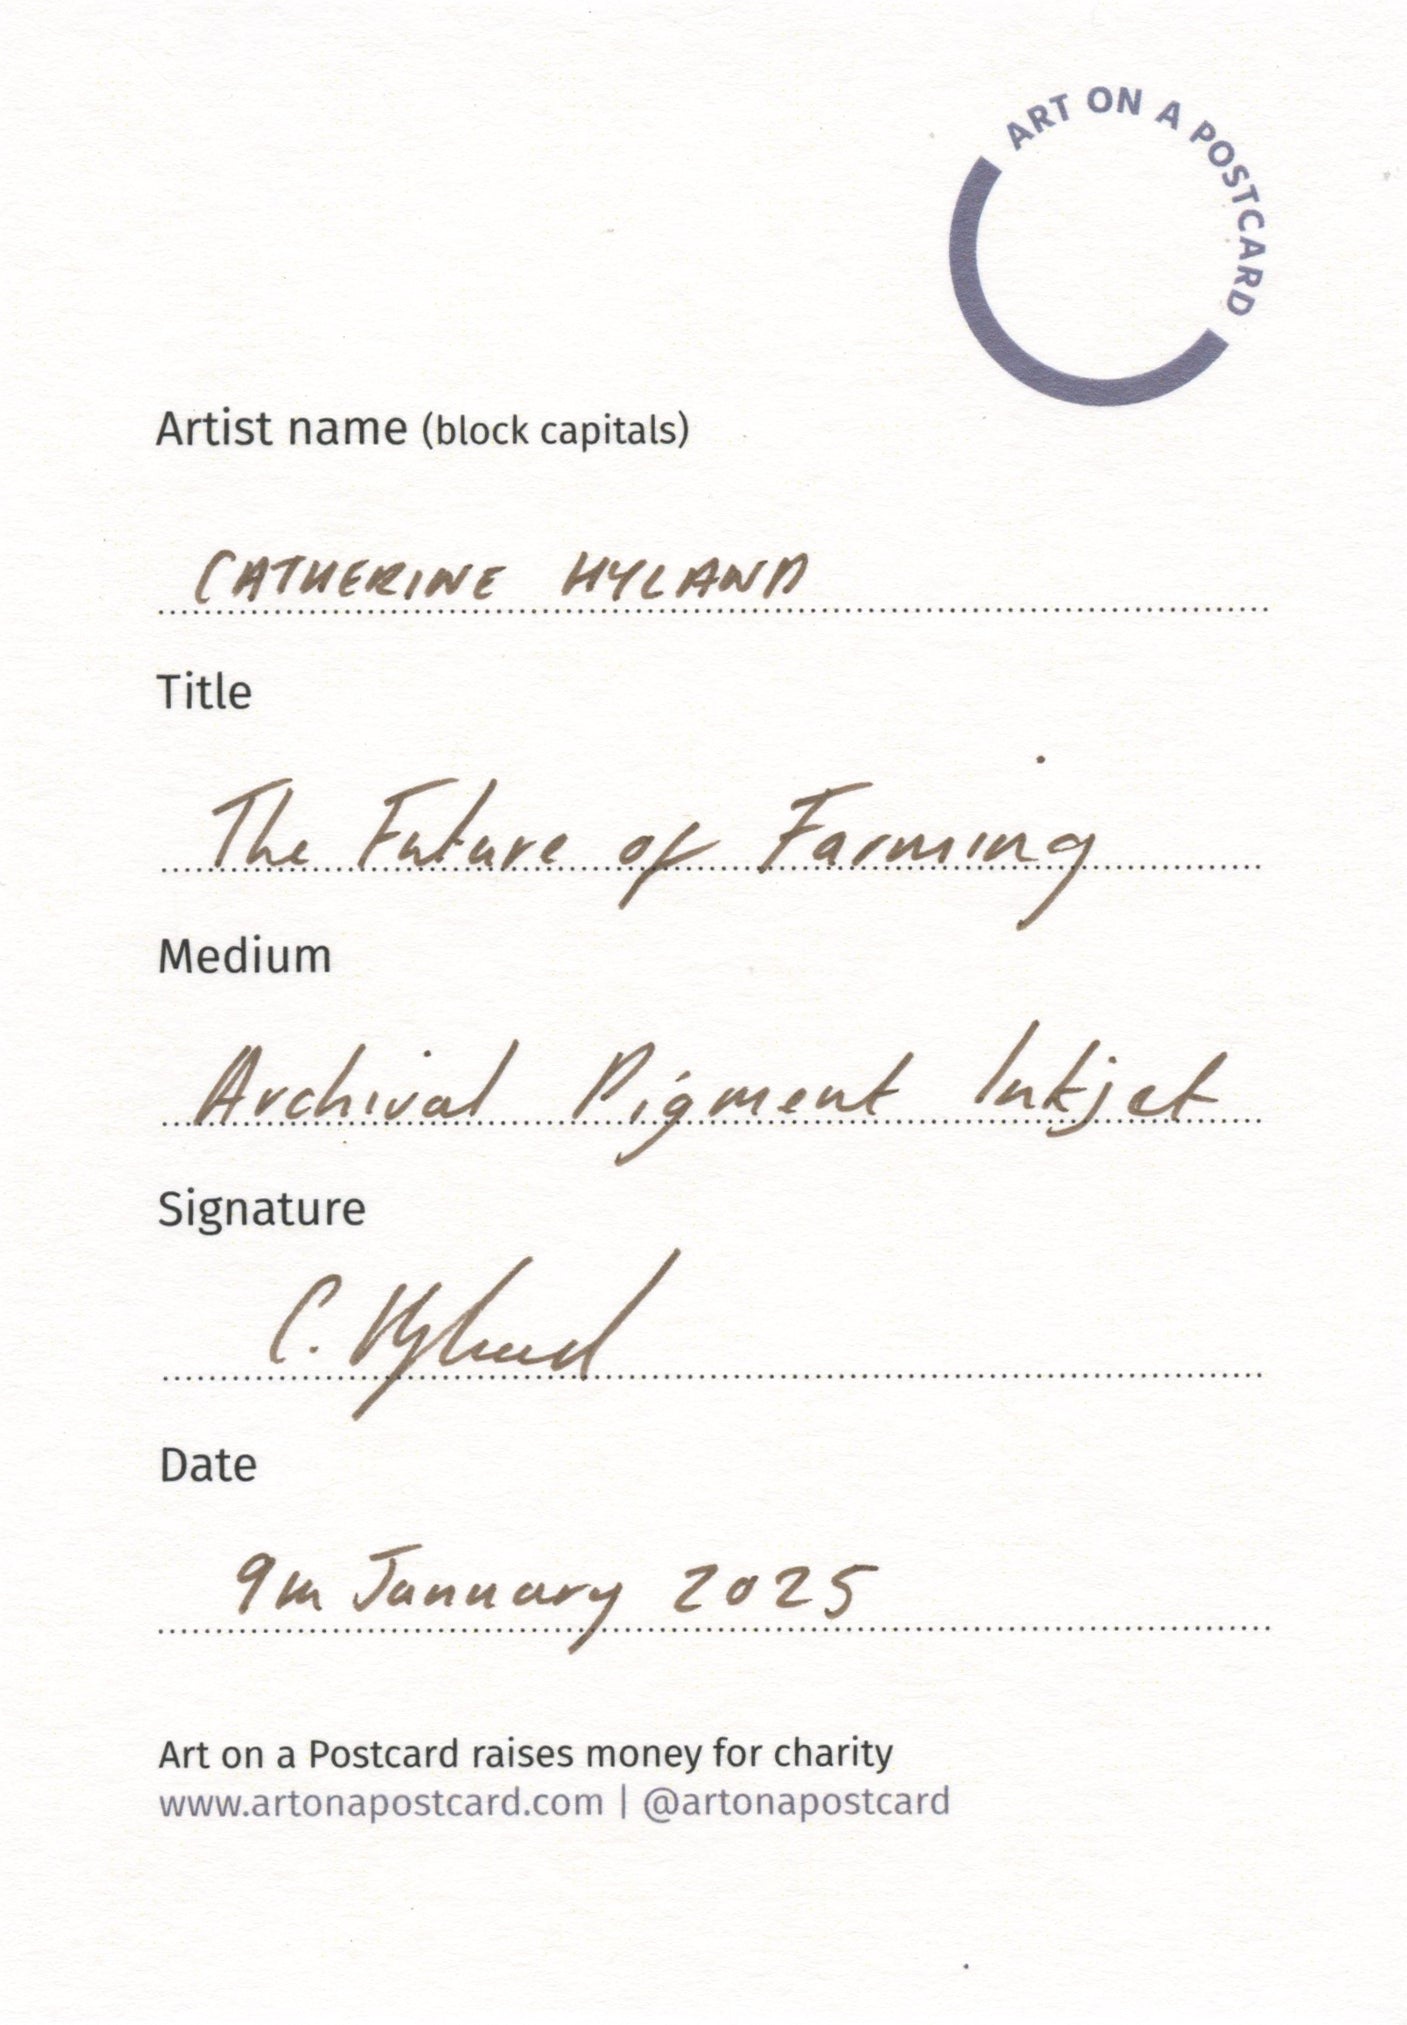 ART ON A POSTCARD
Artist name (block capitals)
CATHERINE HYLAND
Title
The Future of Farming
Medium
Archival Pigment Inkjet
Signature
C. Hyland
Date
9th January 2025
Art on a Postcard raises money for charity
www.artonapostcard.com | @artonapostcard